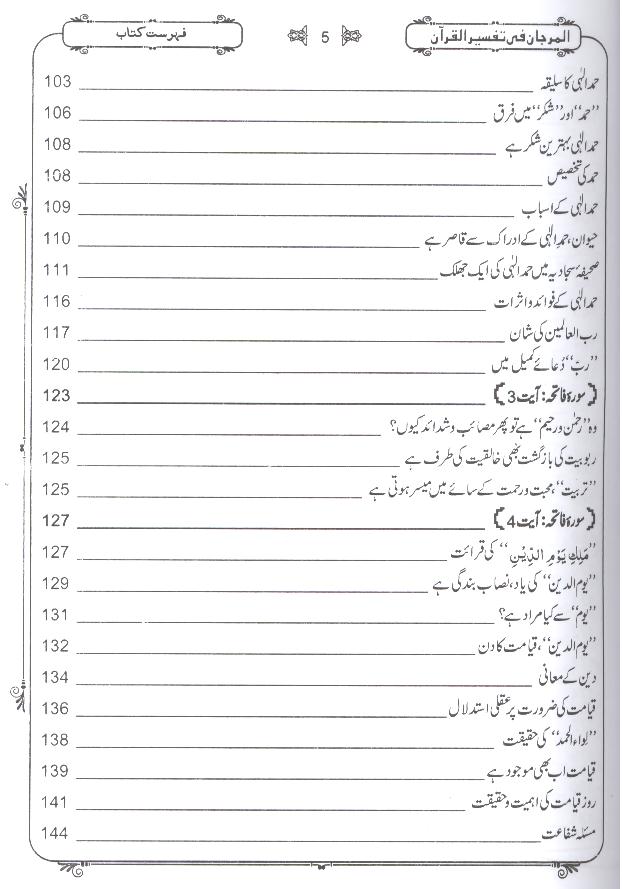 المرجان فی تفسیر القرآن 5 فہرست کتاب
حمد الٰہی کا سلیقہ 103
’’حمد‘‘ اور ’’شکر‘‘ میں فرق 106
حمد الٰہی بہترین شکر ہے 108
حمد کی تخصیص 108
حمد الٰہی کے اسباب 109
حیوان، حمدِ الٰہی کے ادراک سے قاصر ہے 110
صحیفۂ سجادیہ میں حمد الٰہی کی ایک جھلک 111
حمد الٰہی کے فوائد و اثرات 116
رب العالمین کی شان 117
’’ربّ‘‘ دُعائے کمیل میں 120
﴿سورۂ فاتحہ: آیت 3﴾ 123
وہ ’’رحمٰن و رحیم‘‘ ہے تو پھر مصائب و شدائد کیوں؟ 124
ربوبیت کی بازگشت بھی خالقیت کی طرف ہے 125
’’تربیت‘‘، محبت و رحمت کے سائے میں میسر ہوتی ہے 125
﴿سورۂ فاتحہ: آیت 4﴾ 127
’’مٰلِكِ يَوْمِ الدِّيْنِ‘‘ کی قرائت 127
’’یوم الدین‘‘ کی یاد، نصاب بندگی ہے 129
’’یوم‘‘ سے کیا مراد ہے؟ 131
’’یوم الدین‘‘، قیامت کا دن 132
دین کے معانی 134
قیامت کی ضرورت پر عقلی استدلال 136
’’لواء الحمد‘‘ کی حقیقت 138
قیامت اب بھی موجود ہے 139
روز قیامت کی اہمیت و حقیقت 141
مسئلہ شفاعت 144